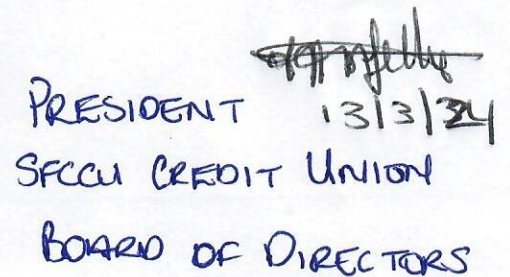 PRESIDENT 13/3/24
SFCCU CREDIT UNION
BOARD OF DIRECTORS